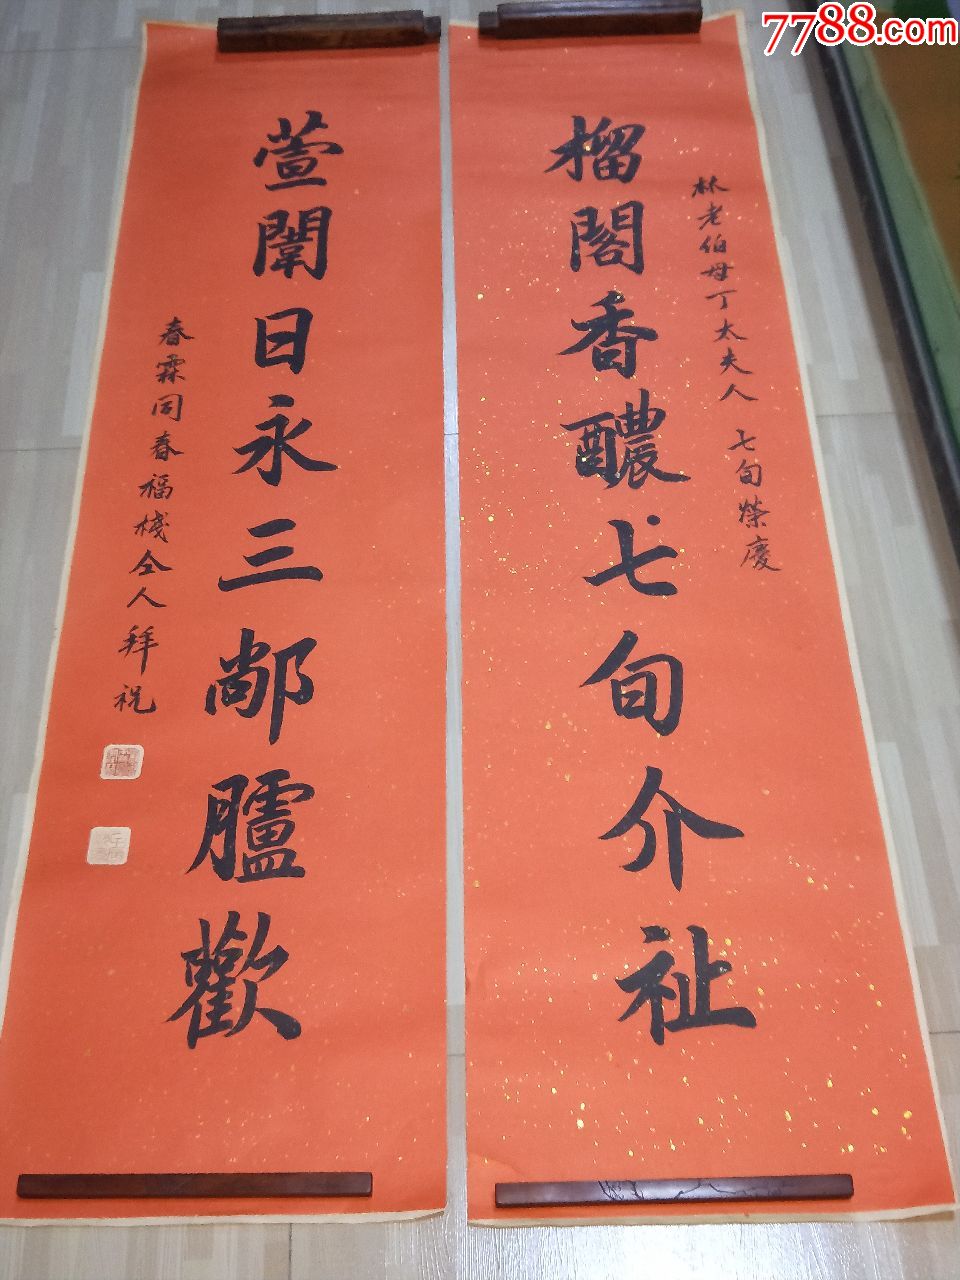 7788.com
林老伯母丁太夫人 七旬榮慶
榴閣香醲七旬介祉
萱闈日永三鄗臚歡
春霖同春福棧仝人拜祝